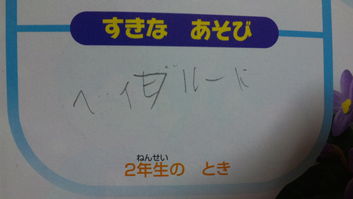 すきな あそび
ベイブレード
ねんせい
2年生の とき